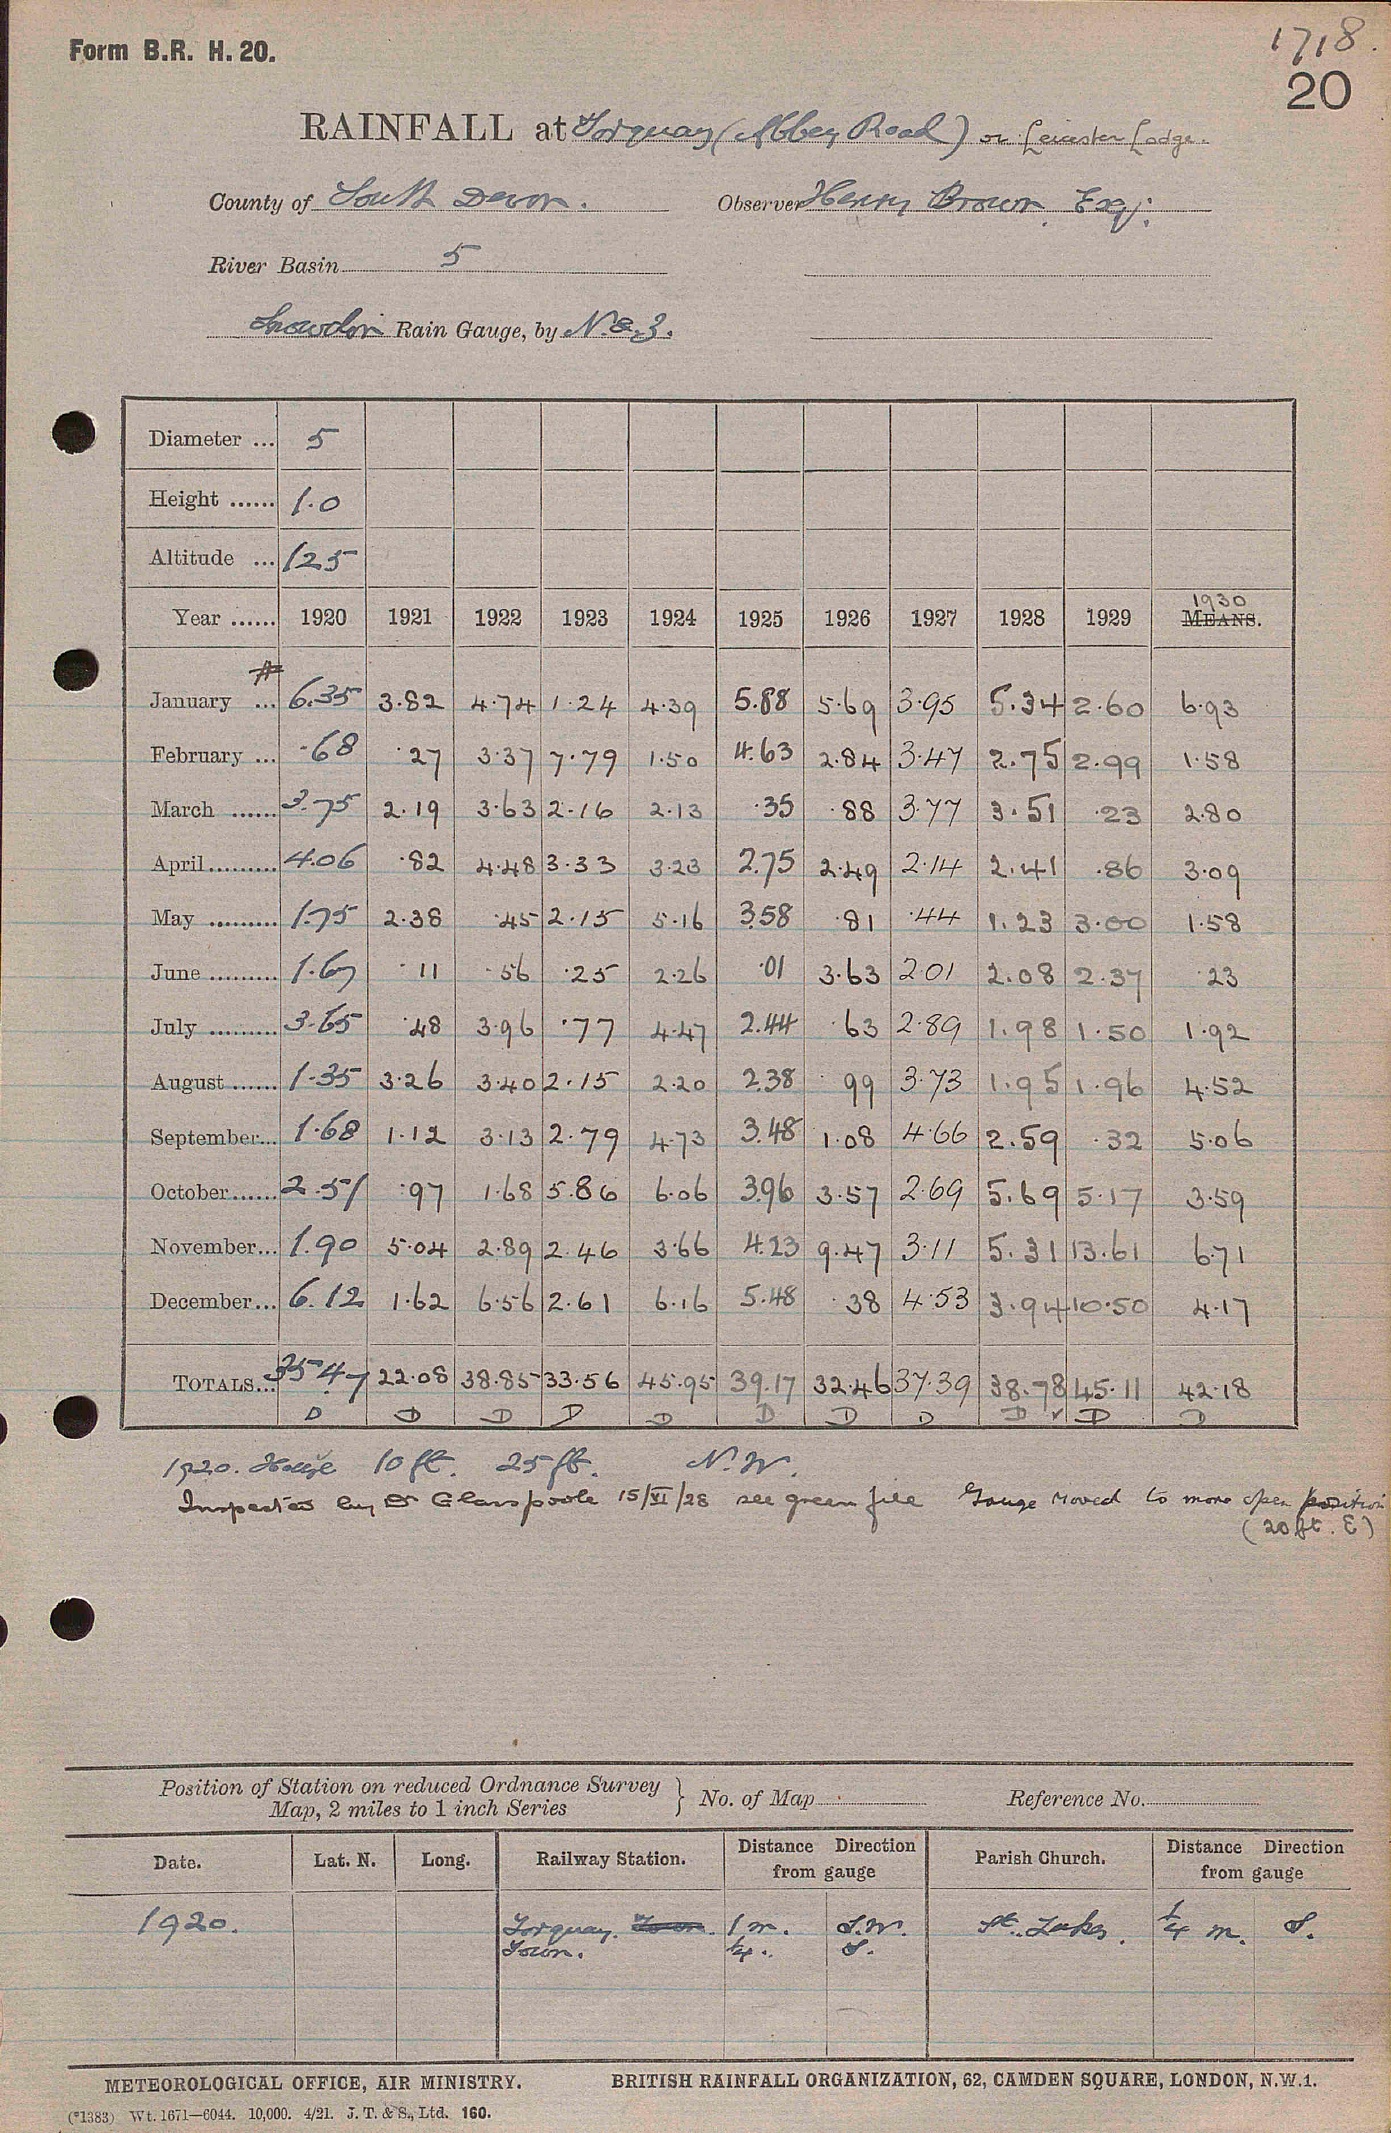 Form B.R. H. 20.
1718.
20
RAINFALL at Torquay (Abbey Road) or Leicester Lodge.
County of South Devon. Observer Henry Brown Esq;
River Basin 5
Snowdon Rain Gauge, by N. & Z.
Diameter ... 5
Height ...... 1.0
Altitude ... 125
Year ...... 1920 1921 1922 1923 1924 1925 1926 1927 1928 1929 1930 MEANS.
January ... 6.35 3.82 4.74 1.24 4.39 5.88 5.69 3.95 5.34 2.60 6.93
February ... .68 .27 3.37 7.79 1.50 4.63 2.84 3.47 2.75 2.99 1.58
March ...... 3.75 2.19 3.63 2.16 2.13 .35 .88 3.77 3.51 .23 2.80
April ......... 4.06 .82 4.48 3.33 3.23 2.75 2.49 2.14 2.41 .86 3.09
May ......... 1.75 2.38 .45 2.15 5.16 3.58 .81 .44 1.23 3.00 1.58
June ......... 1.67 .11 .56 .25 2.26 .01 3.63 2.01 2.08 2.37 .23
July ......... 3.65 .48 3.96 .77 4.47 2.44 .63 2.89 1.98 1.50 1.92
August ...... 1.35 3.26 3.40 2.15 2.20 2.38 .99 3.73 1.95 1.96 4.52
September... 1.68 1.12 3.13 2.79 4.73 3.48 1.08 4.66 2.59 .32 5.06
October...... 2.51 .97 1.68 5.86 6.06 3.96 3.57 2.69 5.69 5.17 3.59
November... 1.90 5.04 2.89 2.46 3.66 4.23 9.47 3.11 5.31 13.61 6.71
December... 6.12 1.62 6.56 2.61 6.16 5.48 .38 4.53 3.94 10.50 4.17
TOTALS... 35.47 22.08 38.85 33.56 45.95 39.17 32.46 37.39 38.78 45.11 42.18
D D D D D D D D D ✓ D D
1920. Hedge 10 ft. 25 ft. N.W.
Inspected by Dr Glasspoole 15/VI/28 see green file Gauge moved to more open position
(20 ft. E)
Position of Station on reduced Ordnance Survey Map, 2 miles to 1 inch Series } No. of Map Reference No.
Date. Lat. N. Long. Railway Station. Distance Direction from gauge Parish Church. Distance Direction from gauge
1920. Torquay. Town. 1 m. S.W. St. Lukes. 1/4 m. S.
Town. 1/4 .. S.
METEOROLOGICAL OFFICE, AIR MINISTRY. BRITISH RAINFALL ORGANIZATION, 62, CAMDEN SQUARE, LONDON, N.W.1.
(*1383) Wt. 1671—6044. 10,000. 4/21. J. T. & S., Ltd. 160.